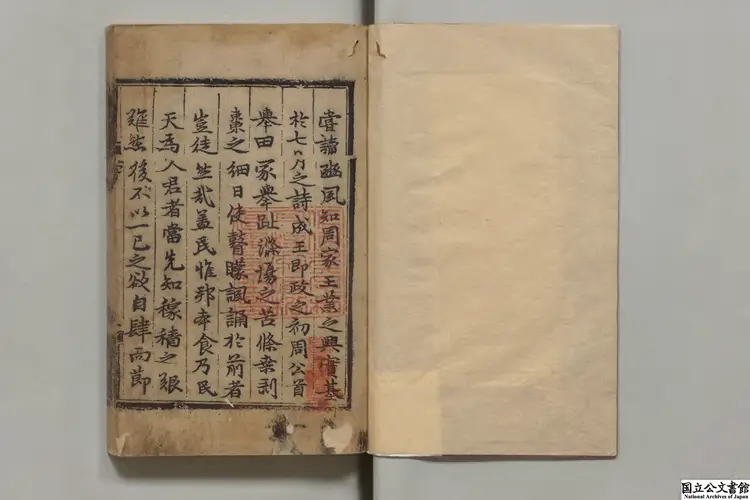 嘗讀豳風知周家王業之興實基
於七月之詩成王即政之初周公首
舉田家舉趾滌場之苦條桑剥
棗之細日使瞽矇諷誦於前者
豈徒然哉盖民惟邦本食乃民
天爲人君者當先知稼穡之艱
難然後不以一己之欲自肆而節
国立公文書館
National Archives of Japan